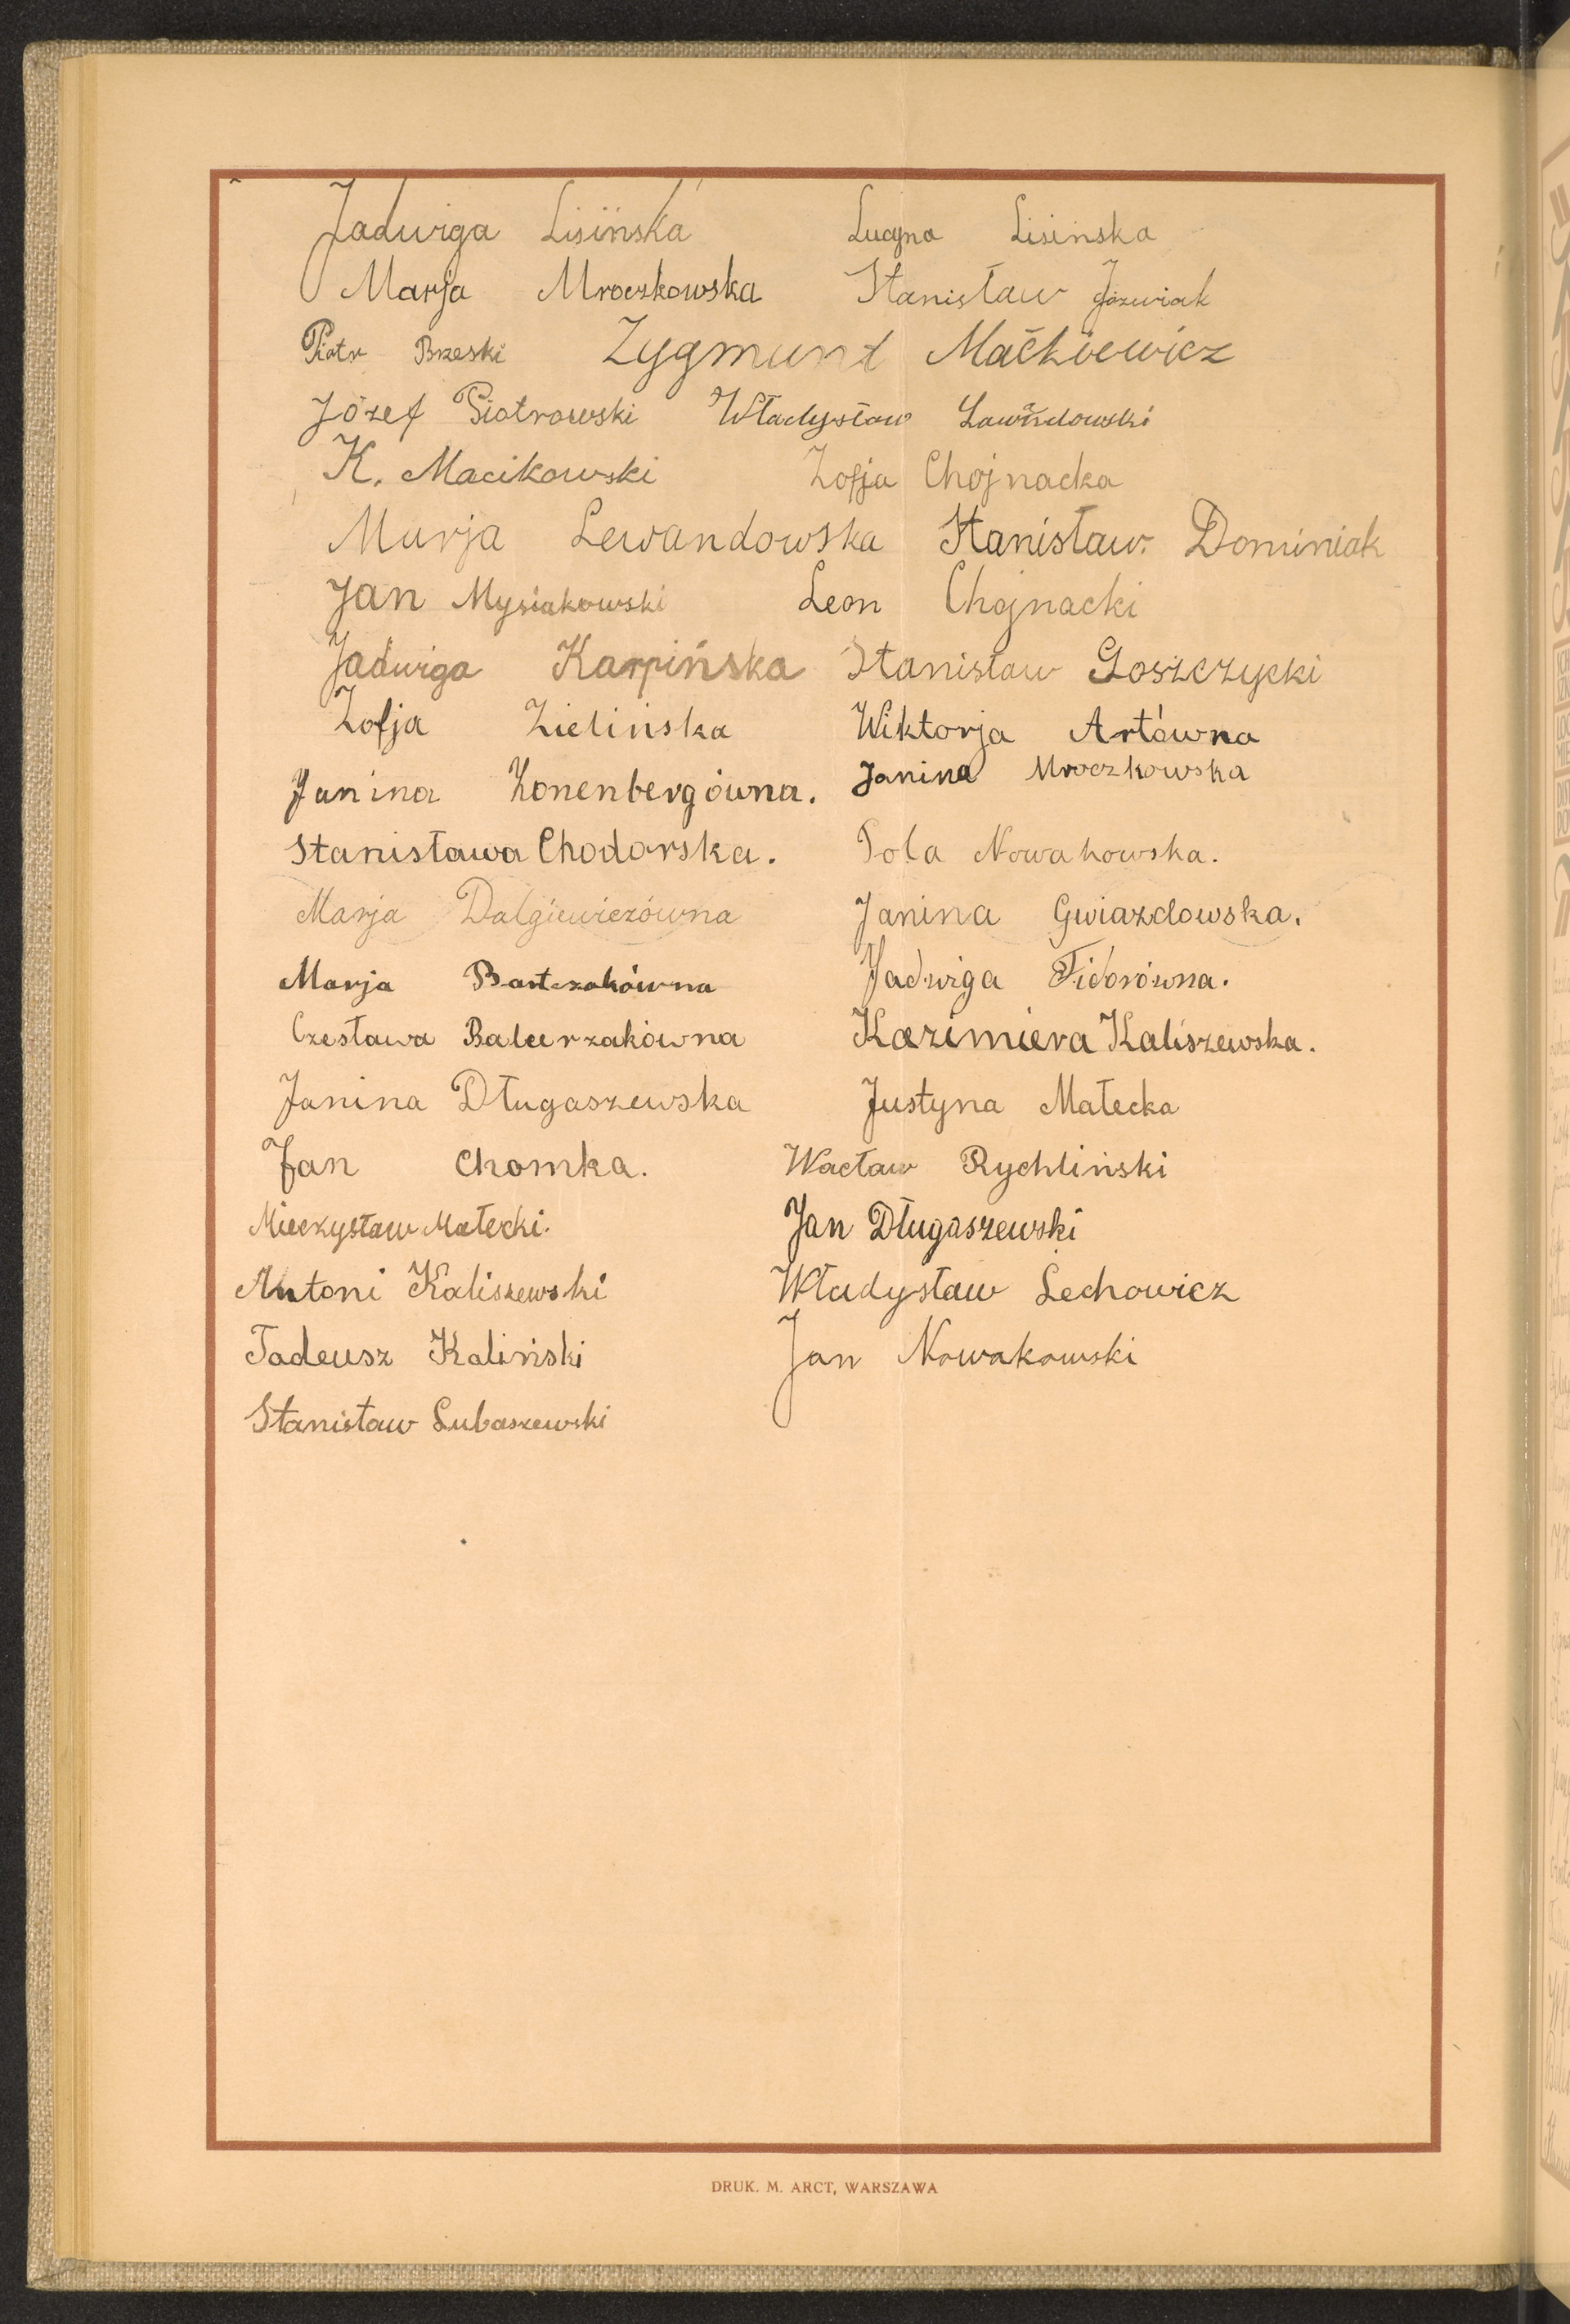 Jadwiga Lisińska Lucyna Lisinska
Marja Mroczkowska Stanisław Jóżwiak
Piotr Brzeski Zygmunt Maćkiewicz
Józef Piotrowski Władysław
K. Macikowski Zofja Chojnacka
Marja Lewandowska Stanisław Dominiak
Jan Mysiakowski Leon Chojnacki
Jadwiga Karpińska Stanisław Goszczycki
Zofja Zielińska Wiktorja Artówna
Janina Zonenbergówna. Janina Mroczkowska
Stanisława Chodorska. Pola Nowakowska.
Marja Dalgiewiczówna Janina Gwiazdowska.
Marja Bartczakówna Jadwiga Fidorówna.
Czesława Balcerzakówna Kazimiera Kaliszewska.
Janina Długaszewska Justyna Małecka
Jan Chomka. Wacław Rychliński
Mieczysław Małecki. Jan Długaszewski
Antoni Kaliszewski Władysław Lechowicz
Tadeusz Kaliński Jan Nowakowski
Stanisław Lubaszewski
DRUK. M. ARCT, WARSZAWA